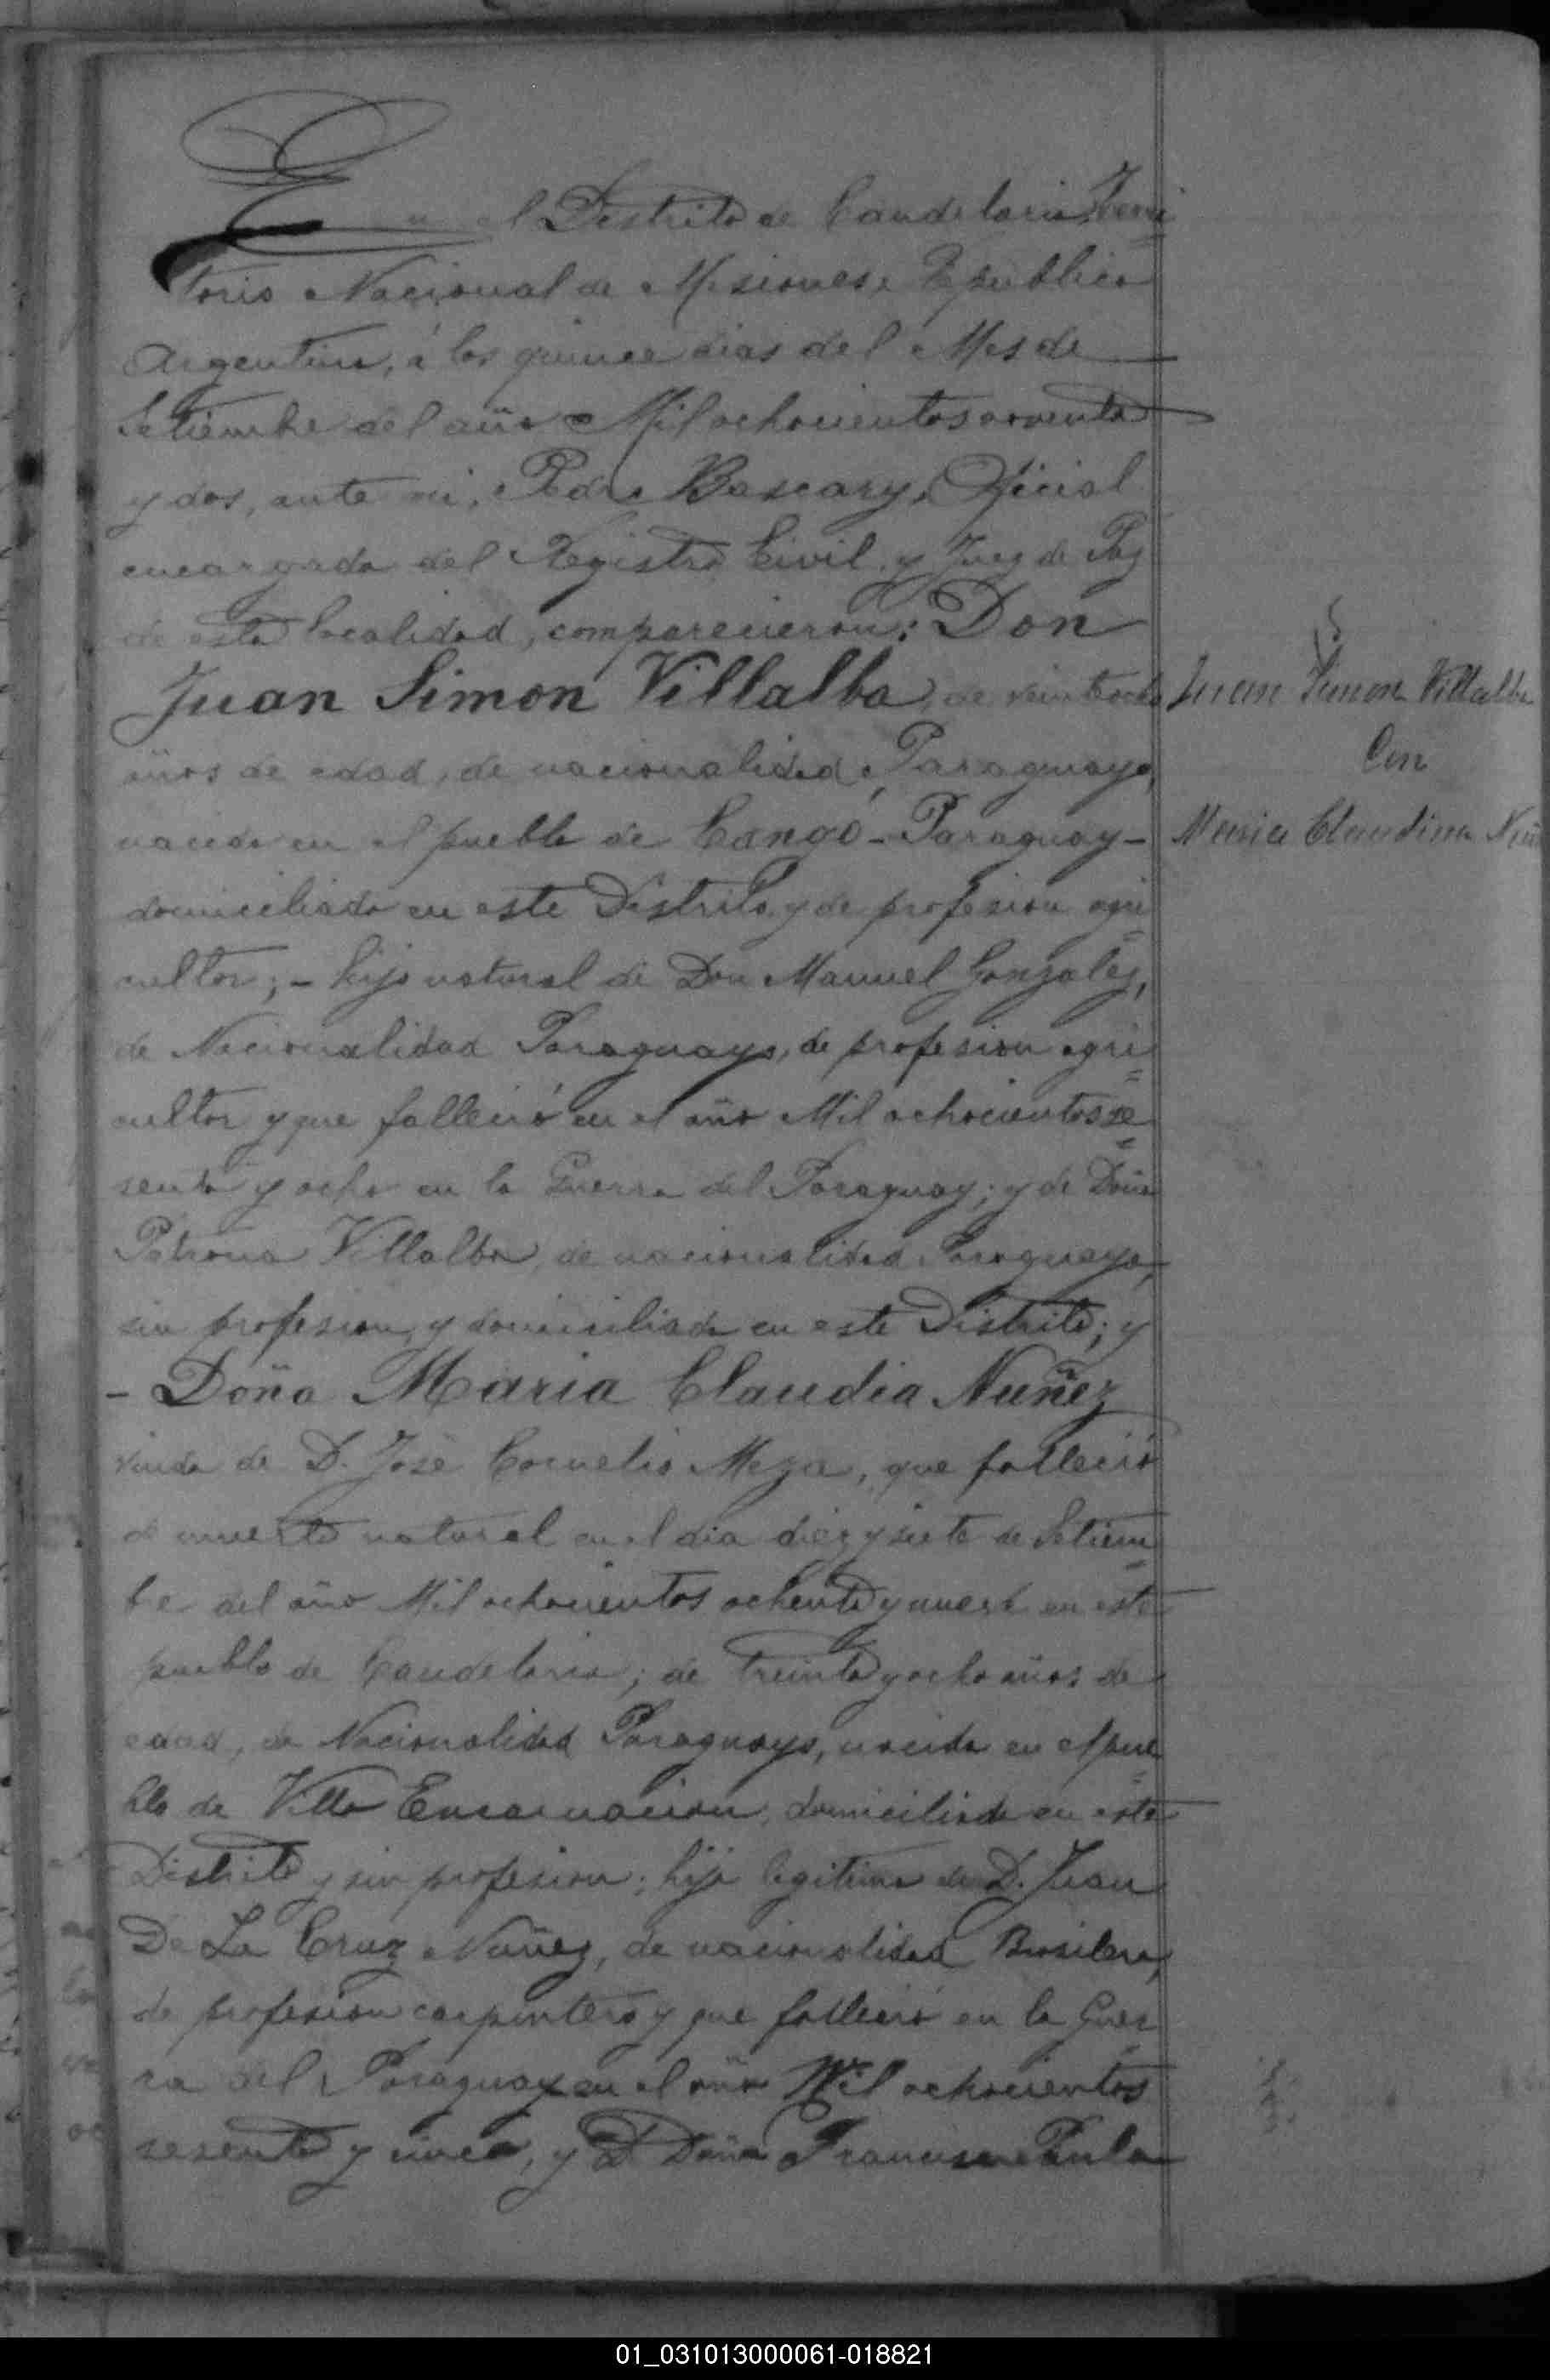 En el Distrito de Candelaria, Terri
torio Nacional de Misiones, Republica
Argentina, á los quince dias del Mes de
Setiembre del año Mil ochocientos noventa
y dos, ante mi, Pedro Bascary, Oficial
encargado del Registro Civil y Juez de Paz
de esta localidad, comparecieron: Don
Juan Simon Villalba, de veintiocho
años de edad, de nacionalidad Paraguaya,
nacido en el pueblo de Cangó - Paraguay -
domiciliado en este Distrito, y de profesion agri
cultor; - hijo natural de Don Manuel Gonzalez,
de Nacionalidad Paraguaya, de profesion agri
cultor y que falleció en el año Mil ochocientos se
senta y ocho en la Guerra del Paraguay; y de Doña
Petrona Villalba, de nacionalidad Paraguaya,
sin profesion, y domiciliada en este Distrito; y
- Doña Maria Claudia Nuñez
viuda de D. José Cornelio Meza, que falleció
de muerte natural en el dia diez y siete de Setiem
bre del año Mil ochocientos ochenta y nueve en este
pueblo de Candelaria; de treinta y ocho años de
edad, de Nacionalidad Paraguaya, nacida en el pue
blo de Villa Encarnacion, domiciliada en este
Distrito y sin profesion; hija legitima de D. Juan
De La Cruz Nuñez, de nacionalidad Brasilera,
de profesion carpintero y que falleció en la Guer
ra del Paraguay en el año Mil ochocientos
sesenta y cinco, y D Doña Francisca Paula
Juan Simon Villalba
Con
Maria Claudina Nuñ
01_031013000061-018821